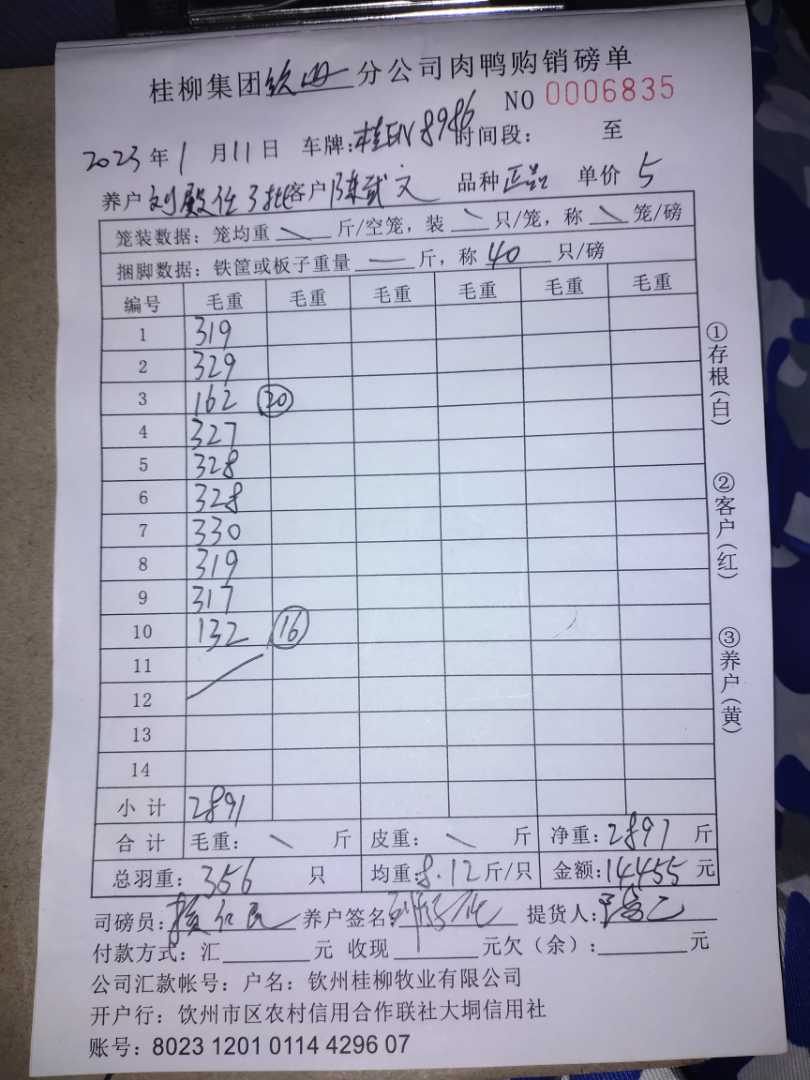 桂柳集团钦州分公司肉鸭购销磅单
NO 0006835
2023年1月11日 车牌:桂EN8986 时间段: 至
养户 刘殿任3批 客户 陈武文 品种 正品 单价 5
笼装数据: 笼均重 \ 斤/空笼, 装 \ 只/笼, 称 \ 笼/磅
捆脚数据: 铁筐或板子重量 — 斤, 称 40 只/磅
编号 毛重 毛重 毛重 毛重 毛重 毛重
1 319
2 329
3 162 (20)
4 327
5 328
6 328
7 330
8 319
9 317
10 132 (16)
11
12
13
14
小计 2891
合计 毛重: \ 斤 皮重: \ 斤 净重: 2891 斤
总羽重: 356 只 均重: 8.12 斤/只 金额: 14455 元
司磅员: 养户签名 提货人:
付款方式: 汇 元 收现 元 欠(余): 元
公司汇款帐号: 户名: 钦州桂柳牧业有限公司
开户行: 饮州市区农村信用合作联社大垌信用社
账号: 8023 1201 0114 4296 07
①存根(白)
②客户(红)
③养户(黄)